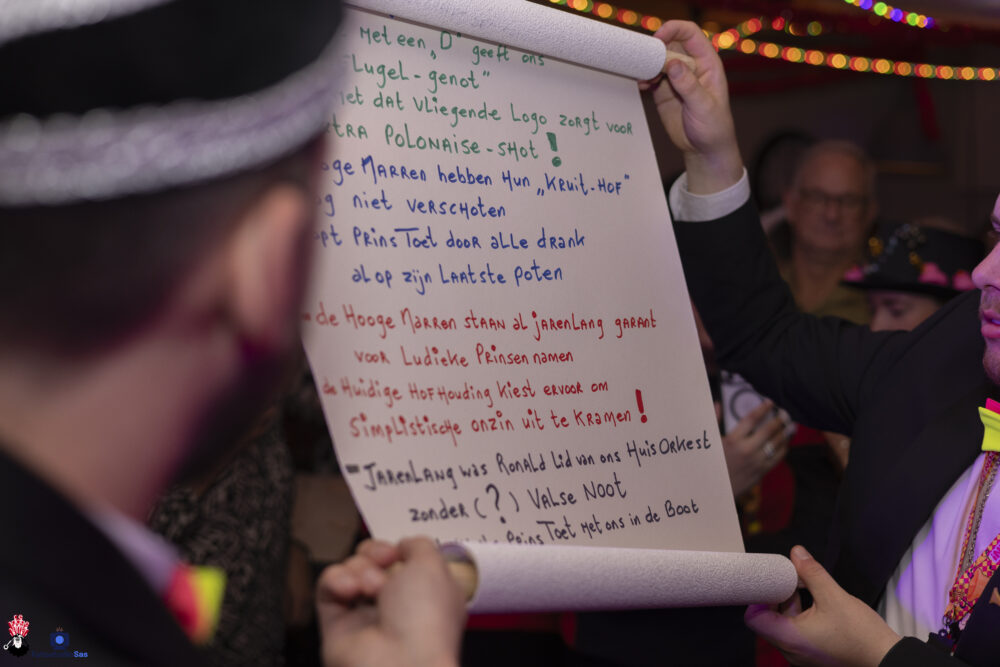 Met een „D" geeft ons
Lugel-genot"
met dat vliegende Logo zorgt voor
XTRA POLONAISE-SHOT!
ooge Narren hebben Hun „KRUIT-HOF"
og niet verschoten
opt Prins Toet door alle drank
al op zijn Laatste poten
- de Hooge Narren staan al jarenlang garant
voor Ludieke Prinsennamen
de Huidige Hofhouding Kiest ervoor om
Simplistische onzin uit te Kramen!
- Jarenlang was Ronald Lid van ons HuisOrkest
zonder (?) Valse Noot
Prins Toet Met ons in de Boot
Sas